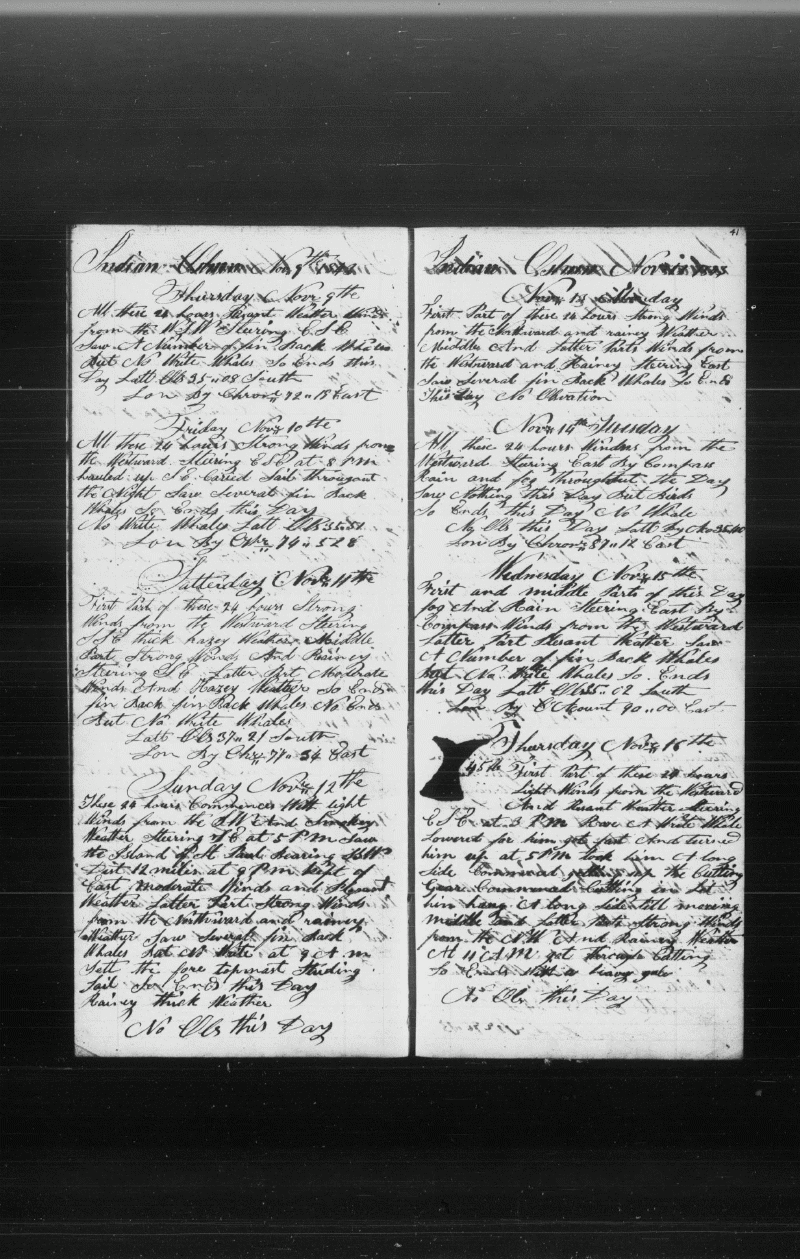 Indian Ocean Nov 9th
Thursday Novr 9th
All these 24 hours Plesant Weather Winds
from the W.S.W Steering E S E
Saw A Number of fin Back Whales
But No Write Whales So Ends this
Day Latt Obs 35 " 08 South
Lon By Chron 72 " 15 East
Friday Novr 10th
All these 24 hours Strong Winds from
the Westward Steering E S E at 8 P M
hauled up S E Caried Sail througout
the Night Saw Severat fin Back
Whales So Ends this Day
No Write Whales Latt Obs 35 " 51
Lon By Chr 74 " 52 E
Satterday Novr 11th
First Part of these 24 hours Strong
Winds from the Westward Steering
S S E thick hazey Weather Middle
Part Strong Winds And Rainey
Steering S E Latter Part Moderate
Winds And Hazey Weather So Ends
fin Back fin Back Whales No Ends
But No Write Whales
Latt Obs 37 " 21 South
Lon By Chr 77 " 34 East
Sunday Novr 12 the
These 24 hours Commences With light
Winds from the And Smokey
Weather Steering at 5 P M Saw
the Island of St Paul Bearing
Dist 12 miles at 9 P M Kept of
East moderate Winds and Plesant
Weather Latter Part Strong Winds
from the Northward and rainey
Weather Saw Several fin Back
Whales But No Write at 9 A m
Sett the fore topmast Studing
Sail So Ends this Day
Rainey thick Weather
No Obs this Day
41
Indian Ocean Nov
Novr 13 Monday
First Part of these 24 hours Strong Winds
from the and rainey Weather
Middle And Latter Parts Winds from
the Westward and Rainey Steering East
Saw Several fin Back Whales So Ends
This Day No Obvation
Novr 14th Tuesday
All these 24 hours Winders from the
Westward Stering East By Compass
Rain and fog throughout the Day
Saw Nothing this Day But Birds
So Ends this Day No Whale
No Obs this Day Latt By
Lon By Chron 87 " 12 East
Wednesday Novr 15 the
First and middle Parts of this Day
fog And Rain Steering East By
Compass Winds from the Westward
Latter Part Plesant Wather Saw
A Number of fin Back Whales
But No Write Whales So Ends
this Day Latt Obs " 02 South
Lon By Count 90 " 00 East
Thursday Novr 16 the
45th First Part of these 24 hours
Light Winds from the Westward
And Plesant Weather Steering
E S E at 3 P M A Write Whale
Lowered for him got fast And turned
him up at 5 P M took him A long
Side Commenced up the Cutting
Gear Commenced Cutting in Let
him hang A long Side till morning
Middle and Latter Parts Strong Winds
from the N W And Rainey Weather
At 11 A M got through Cutting
So Ends With a heavy gale
No Obs this Day